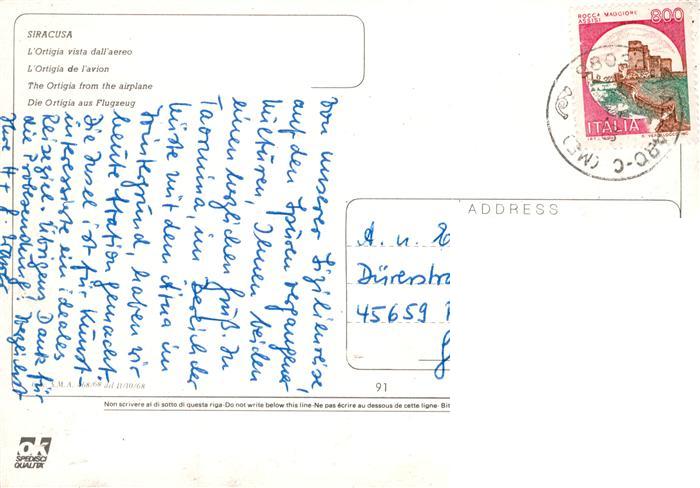 SIRACUSA
L'Ortigia vista dall'aereo
L'Ortigia de l'avion
The Ortigia from the airplane
Die Ortigia aus Flugzeug
Von unserer Sizilienreise
auf den Spuren vergangener
Kulturen, Ihnen beiden
einen herzlichen Gruß. In
Taormina, im Bereich der
Küste mit dem Ätna im
Hintergrund, haben wir
heute Station gemacht.
Die Insel ist für Kunst-
interessierte ein ideales
Reiseziel. Übrigens Dank für
die Probesendung! Herzlichst
Ihre H + J.
ROCCA MAGGIORE
ASSISI
800
ITALIA
ADDRESS
A. u.
Dürerstra
45659
91
Non scrivere al di sotto di questa riga-Do not write below this line-Ne pas écrire au dessous de cette ligne- Bit
ok
SPEDISCI
QUALITA'